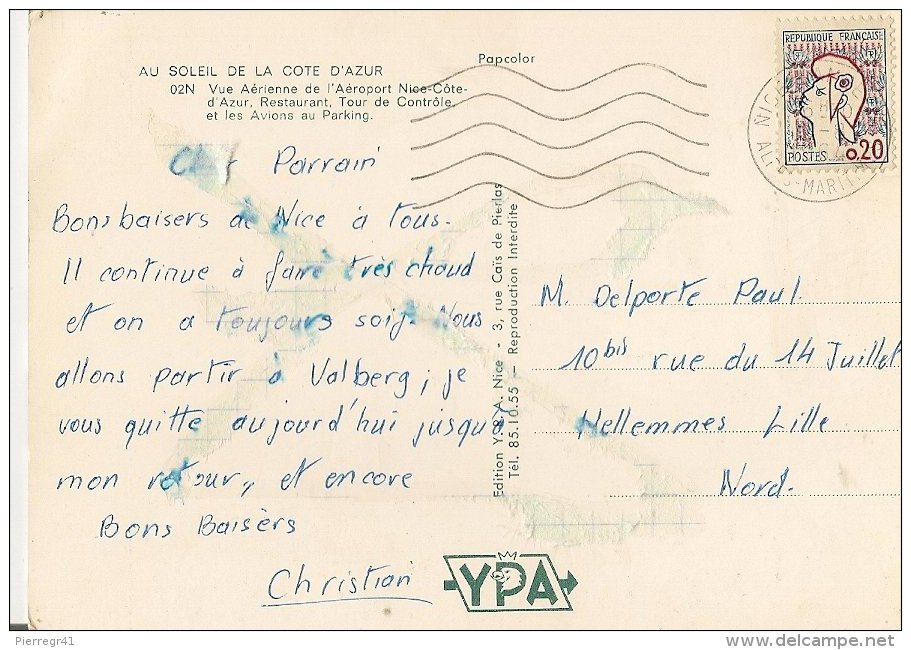 AU SOLEIL DE LA COTE D'AZUR
02N Vue Aérienne de l'Aéroport Nice-Côte-
d'Azur, Restaurant, Tour de Contrôle
et les Avions au Parking.
Papcolor
REPUBLIQUE FRANÇAISE
POSTES 0,20
NICE
ALPES-MARITIMES
Cher Parrain
Bons baisers de Nice à tous.
Il continue à faire très chaud
et on a toujours soif. Nous
allons partir à Valberg ; je
vous quitte aujourd'hui jusqu'à
mon retour, et encore
Bons Baisèrs
Christian
Edition Y.P.A. Nice - 3, rue Caïs de Pierlas
Tél. 85.10.55 - Reproduction Interdite
M. Delporte Paul.
10bis rue du 14 Juillet
Hellemmes Lille
Nord.
YPA
Pierregr41
www.delcampe.net